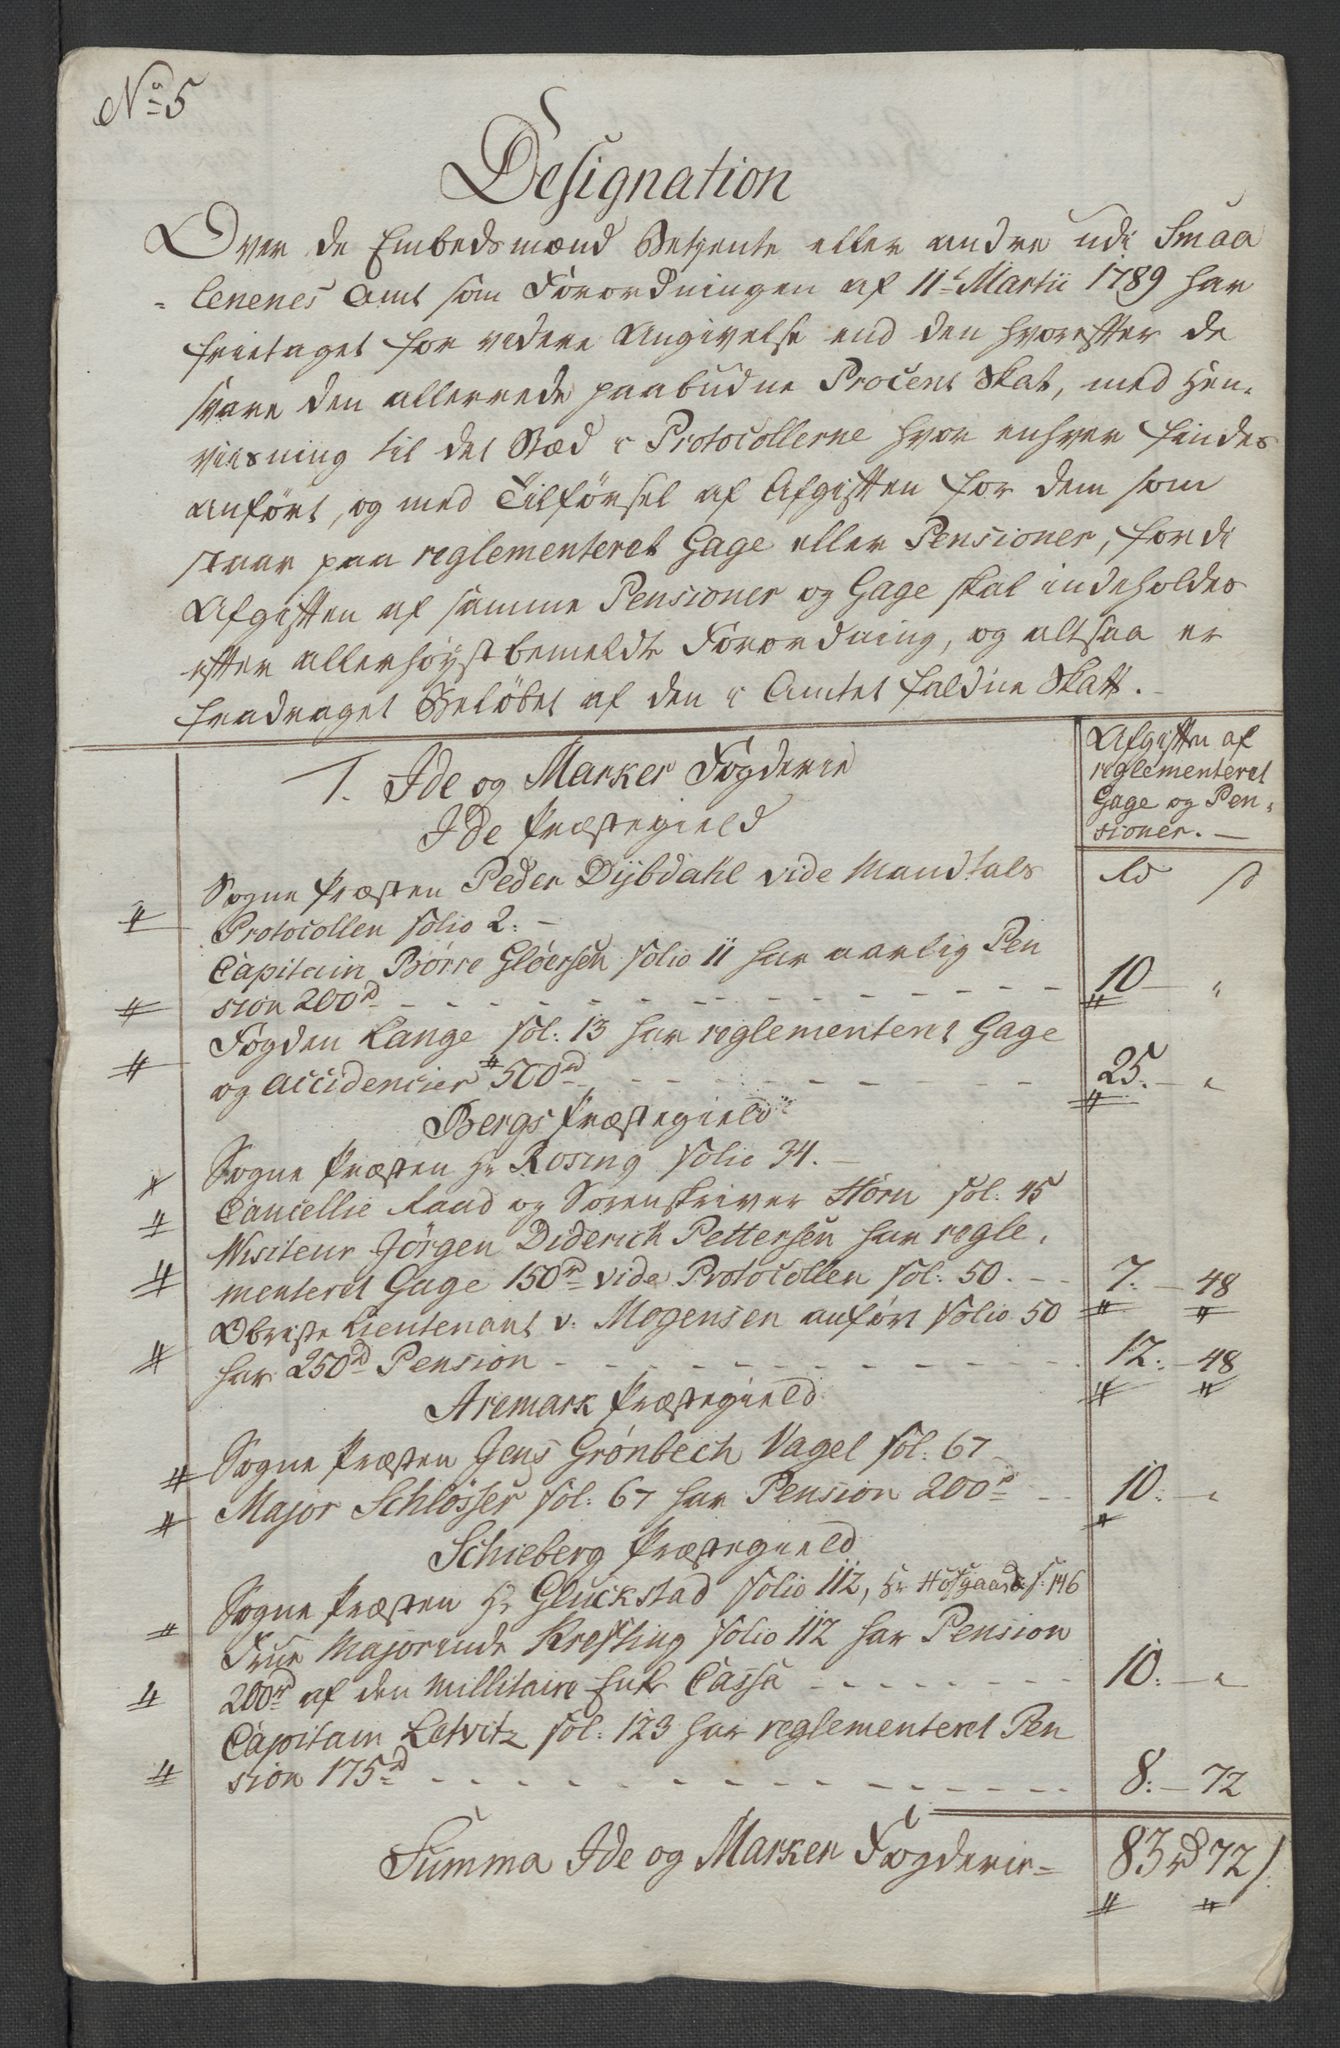 No 5
Designation
Over de Embedsmænd Betjente eller andre udi Smaa
lenenes Amt som Forordningen af 11te Martii 1789 har
frietaget for videre Angivelse end den hvorefter de
svare den allerrede paabudne Procent Skat, med Hen-
viisning til det Stæd i Protocollerne hvor enhver findes
anført, og med Tilførsel af Afgiften for dem som
staar paa reglementeret Gage eller Pensioner, fordi
Afgiften af samme Pensioner og Gage skal indeholdes
efter allerhøystbemeldte Forordning, og altsaa er
fradraget Beløbet af den i Amtet faldne Skatt.
Afgiften af
reglementeret
Gage og Pen-
sioner.
1. Ide og Marker Fogderie
Ide Præstegield
Rd s
Sogne Præsten Peder Dybdahl vide Mandtals
Protocollen folio 2.
Capitain Børre Gløersen folio 11 har aarlig Pen
sion 200rd 10 "
Fogden Lange fol: 13 har reglementeret Gage
og Accidencier 500rd 25. "
Bergs Præstegield
Sogne Præsten Hr Rosing folio 34.
Cancellie Raad og Sorenskriver Horn fol: 45
Visiteur Jörgen Diderich Pettersen har regle-
menteret Gage 150rd vide Protocollen fol: 50. 7. 48
Obriste Lieutenant v. Mogensen anført folio 50
har 250rd Pension 12. 48
Aremark Præstegield
Sogne Præsten Jens Grønbech Vagel fol: 67
Major Schlösser fol: 67 har Pension 200rd 10. "
Schieberg Præstegield
Sogne Præsten Hr Gluckstad folio 112, Hr Hofgaard f: 146
Frue Majorinde Krefting folio 112 har Pension
200rd af den Millitaire Enke Cassa 10. "
Capitain Letvitz fol: 123 har reglementeret Pen
sion 175rd 8. 72
Summa Ide og Marker Fogderie 83rd 72s